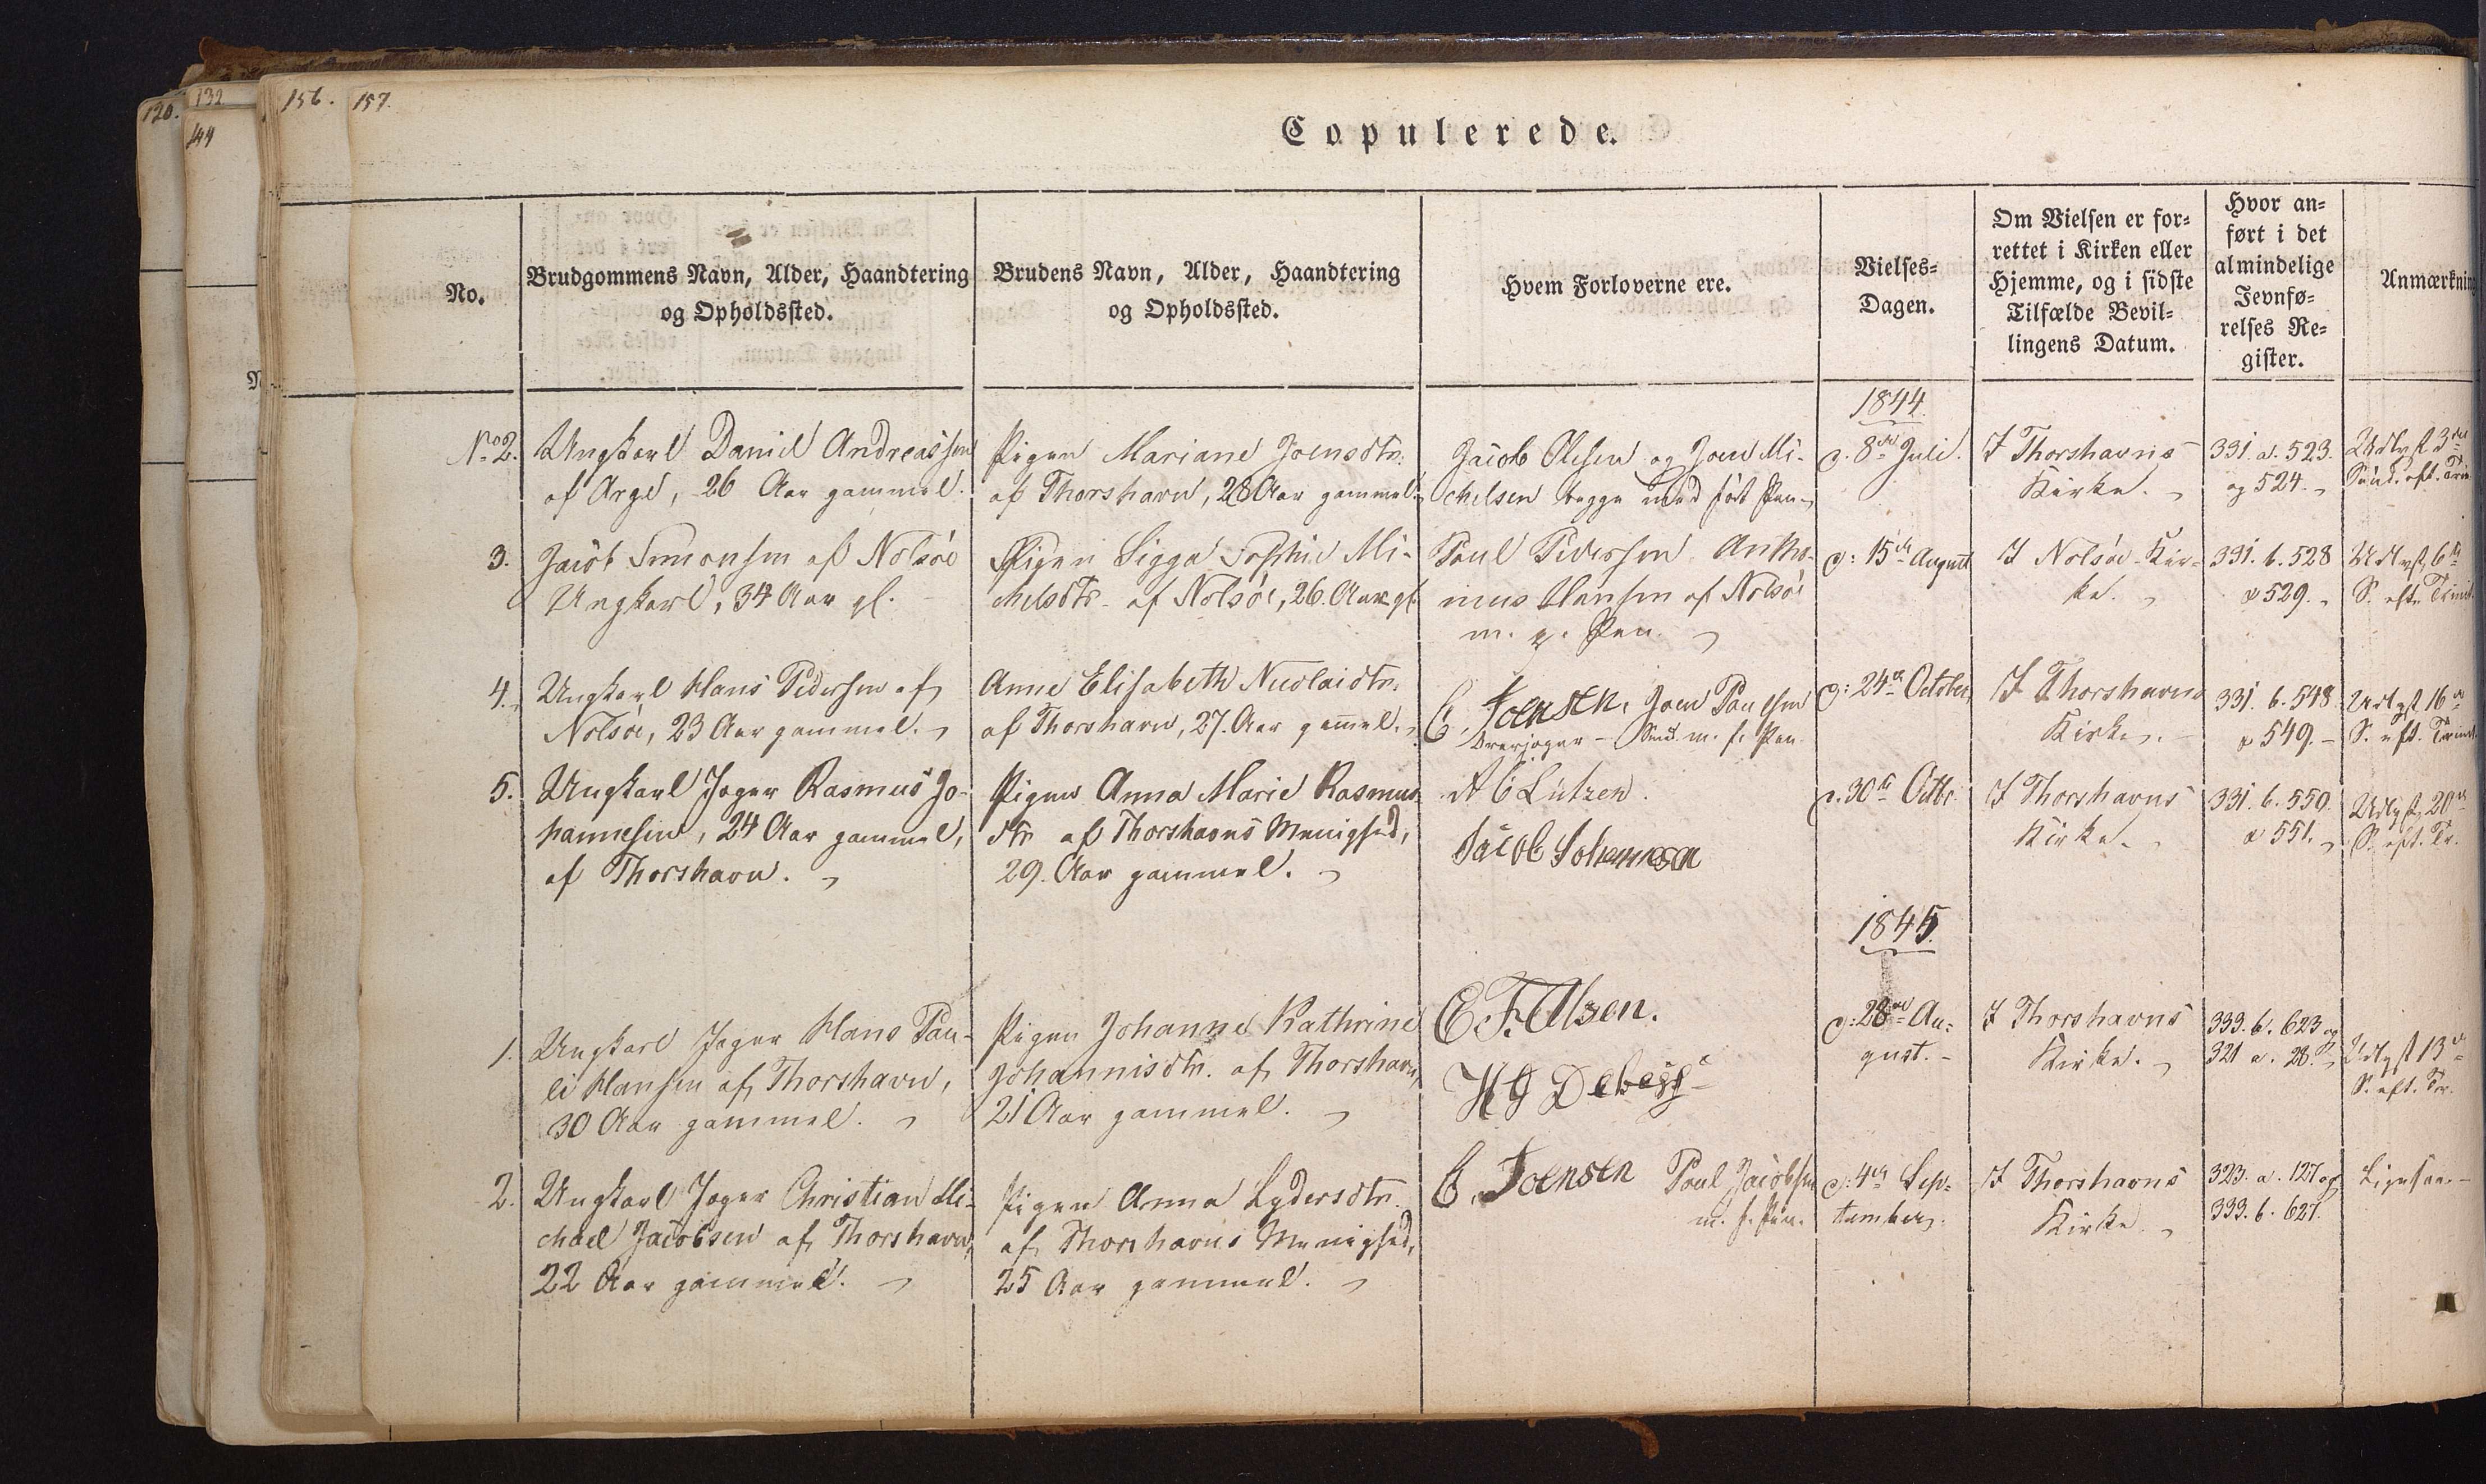 120.
132
144
156.
157.
Copulerede.
No.
Brudgommens Navn, Alder, Haandtering
og Opholdssted.
Brudens Navn, Alder, Haandtering
og Opholdssted.
Hvem Forloverne ere.
Vielses=
Dagen.
Om Vielsen er for=
rettet i Kirken eller
Hjemme, og i sidste
Tilfælde Bevil=
lingens Datum.
Hvor an=
ført i det
almindelige
Jevnfø=
relses Re=
gister.
Anmærkning
1844.
No 2.
Ungkarl Daniel Andreassen
af Arge, 26 Aar gammel.
Pigen Mariane Joensdtr.
af Thorshavn, 28 Aar gammel.
Jacob Olesen og Joen Mi-
chelsen begge med ført Pen
d. 8de Juli.
I Thorshavns
Kirke.
331. a. 523.
og 524.
Udlyst 3die
Sönd. eft. Trin
3.
Jacob Simonsen af Nolsöe
Ungkarl, 34 Aar gl.
Pigen Sigga Sophie Mi-
chelsdtr. af Nolsöe, 26. Aar gl.
Poul Pedersen Antho-
nius Hansen af Nolsöe
m. p. Pen.
d: 15de August
I Nolsöe Kir-
ke.
331. b. 528
& 529.
Udlyst 6te
S. efter Trinit.
4.
Ungkarl Hans Pedersen af
Nolsöe, 23 Aar gammel.
Anne Elisabeth Nicolaidtr.
af Thorshavn, 27. Aar gammel.
C. Joensen. Joen Poulsen
m. f. Pen
d: 24de October
I Thorshavns
Kirke.
331. b. 548
& 549.
Udlyst 16de
S. eft. Trinit.
5.
Ungkarl Jæger Rasmus Jo-
hannesen, 24 Aar gammel,
af Thorshavn.
Pigen Anna Marie Rasmus-
dtr af Thorshavns Menighed,
29. Aar gammel.
A C Lützen.
Jacob Johannesen
d. 30te Octbr.
I Thorshavns
Kirke.
331. b. 550.
& 551.
Udlyst 20de
S. eft. Tr.
1845.
1.
Ungkarl Jæger Hans Pau-
li Hansen af Thorshavn,
30 Aar gammel.
Pigen Johanne Kathrine
Johannisdtr. af Thorshavn,
21 Aar gammel.
E. F. Olsen.
H G Debess
d: 28de Au-
gust.
I Thorshavns
Kirke.
333. b. 623 og
321 a. 28.
Udlyst 13de
S. eft. Tr.
2.
Ungkarl Jæger Christian Mi-
chael Jacobsen af Thorshavn,
22 Aar gammel.
Pigen Anna Lydersdtr.
af Thorshavns Menighed,
25 Aar gammel.
C. Joensen Poul Jacobsen
m. f. Pen.
d: 4de Sep-
tember.
I Thorshavns
Kirke
323. a. 127 og
333. b. 627.
Ligesaa.